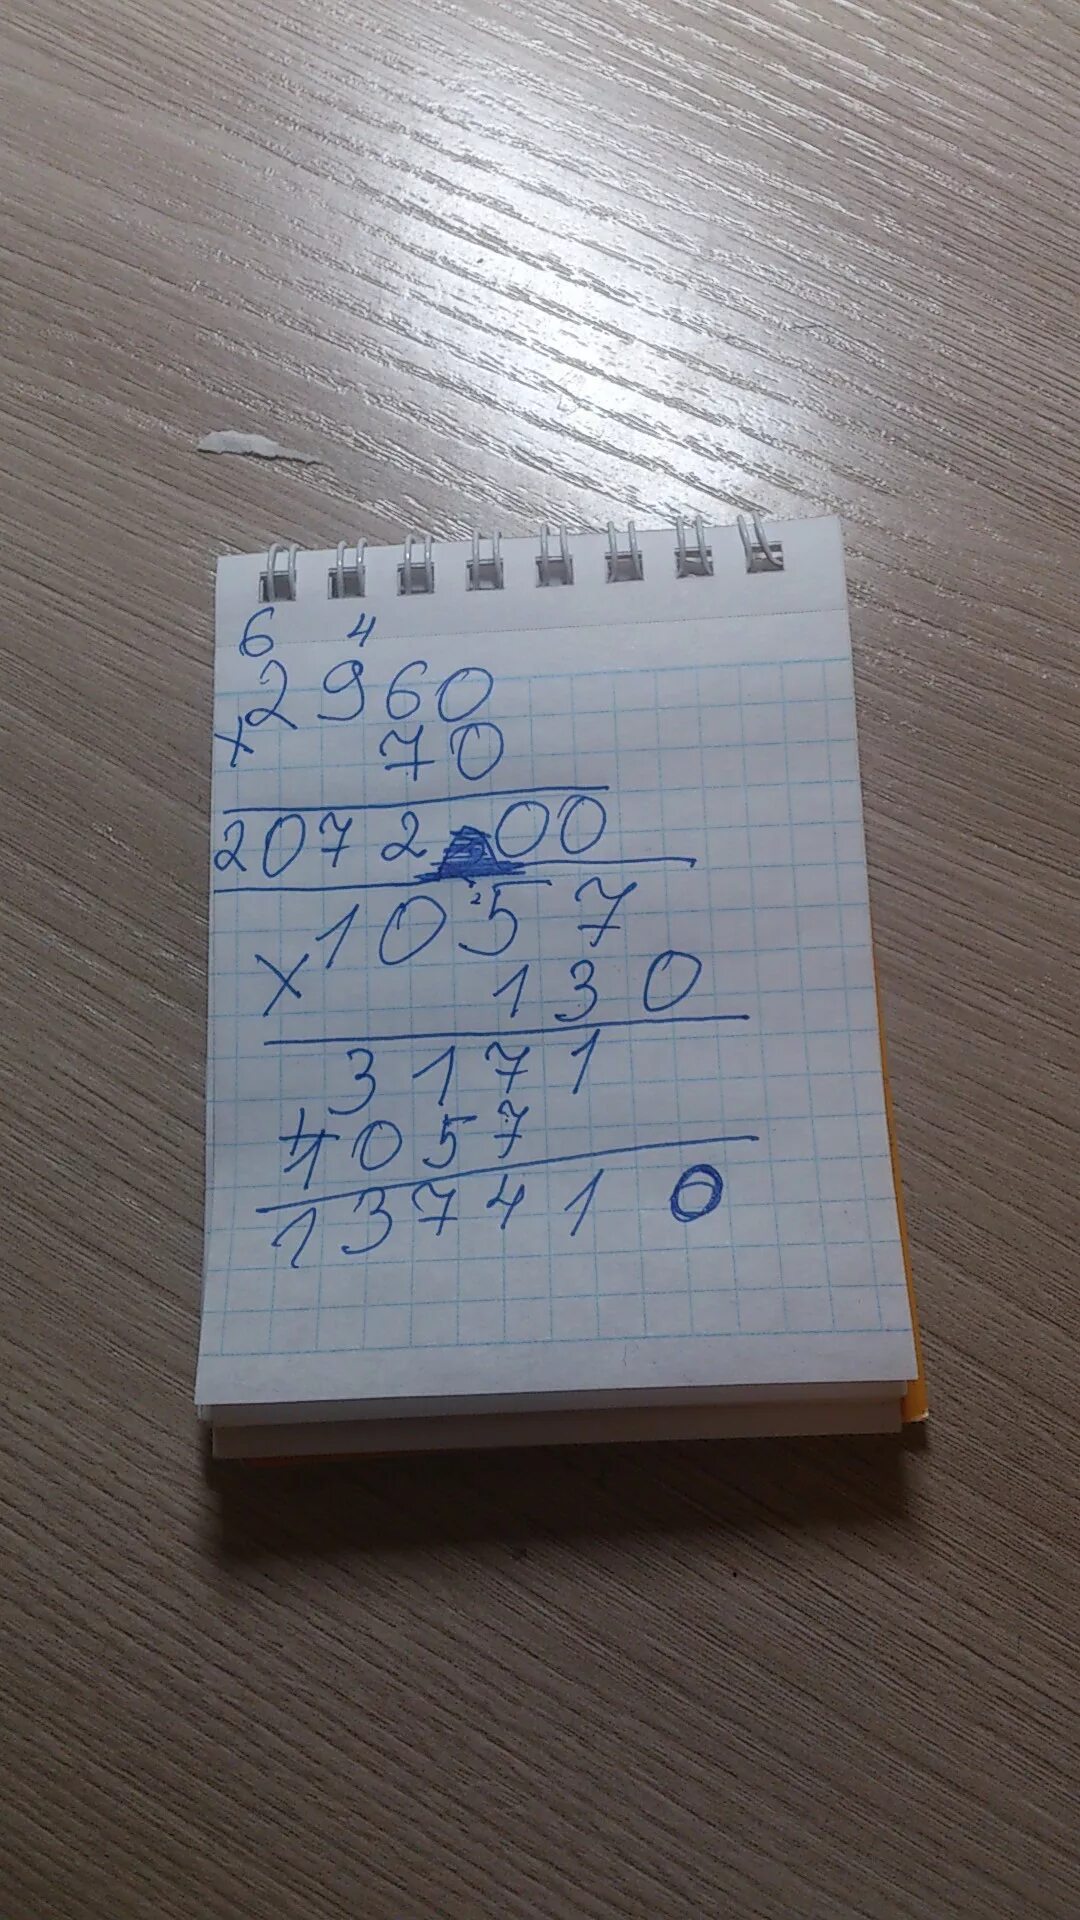 6 4
2960
× 70
2072 00
2
1057
× 130
3171
1057
137410